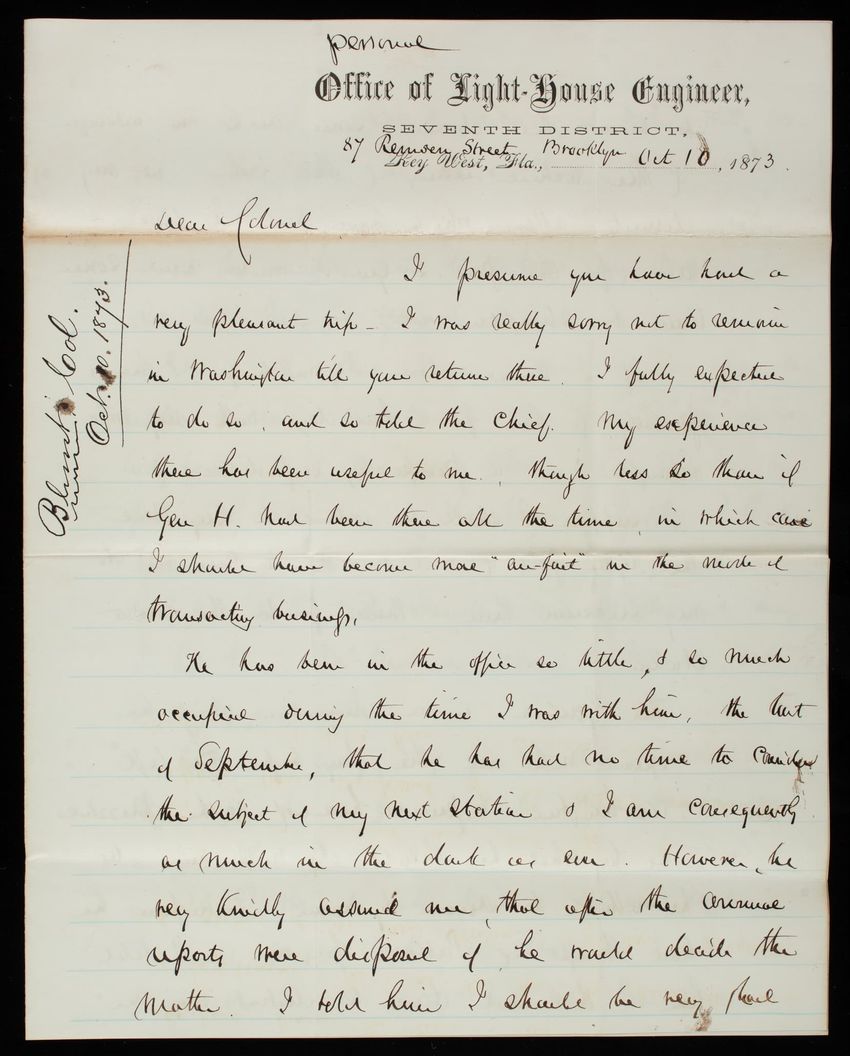 personal
Office of Light-House Engineer,
SEVENTH DISTRICT,
87 Remsen Street Brooklyn
Key West, Fla., Oct 10, 1873.
Dear Colonel
I presume you have had a
very pleasant trip - I was really sorry not to remain
in Washington till your return there. I fully expected
to do so, and so told the Chief. My experience
there has been useful to me, though less so than if
Gen H. had been there all the time, in which case
I should have become more "au-fait" in the mode of
transacting business,
He has been in the office so little, & so much
occupied during the time I was with him, the last
of September, that he has had no time to consider
the subject of my next station & I am consequently
as much in the dark as ever. However, he
very kindly assured me, that after the annual
reports were disposed of, he would decide the
matter. I told him I should be very glad
Blunt, Col.
Oct. 10. 1873.